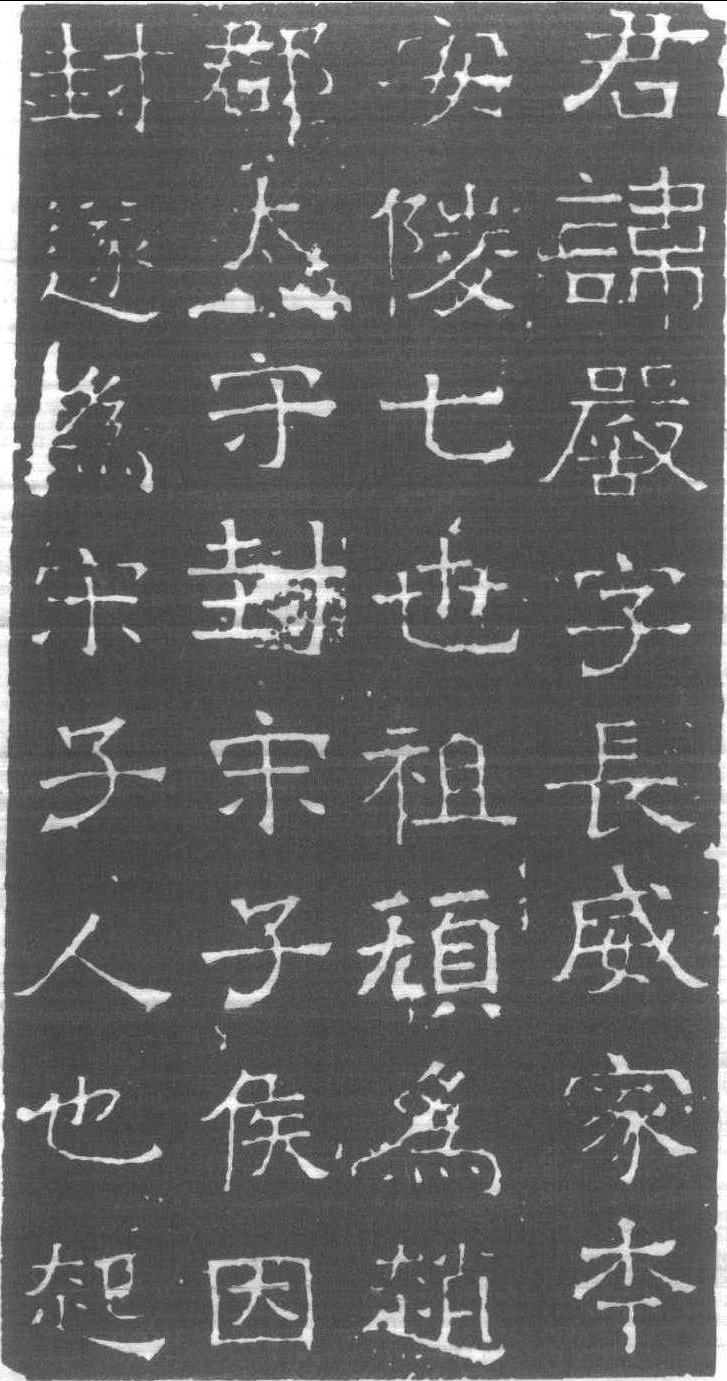 君諱嚴字長威家李
安陵七也祖頏爲趙
郡太守封宋子侯因
封遂爲宋子人也起